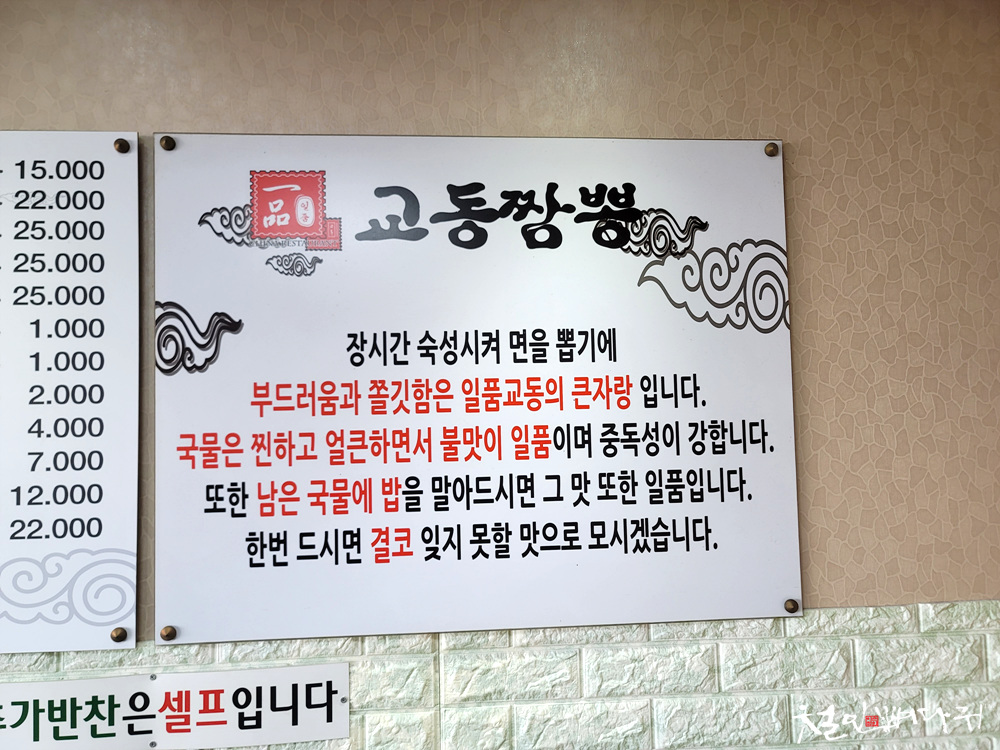 15.000
22.000
25.000
25.000
25.000
1.000
1.000
2.000
4.000
7.000
12.000
22.000
一品
일품
교동짬뽕
장시간 숙성시켜 면을 뽑기에
부드러움과 쫄깃함은 일품교동의 큰자랑 입니다.
국물은 찐하고 얼큰하면서 불맛이 일품이며 중독성이 강합니다.
또한 남은 국물에 밥을 말아드시면 그 맛 또한 일품입니다.
한번 드시면 결코 잊지 못할 맛으로 모시겠습니다.
추가반찬은셀프입니다